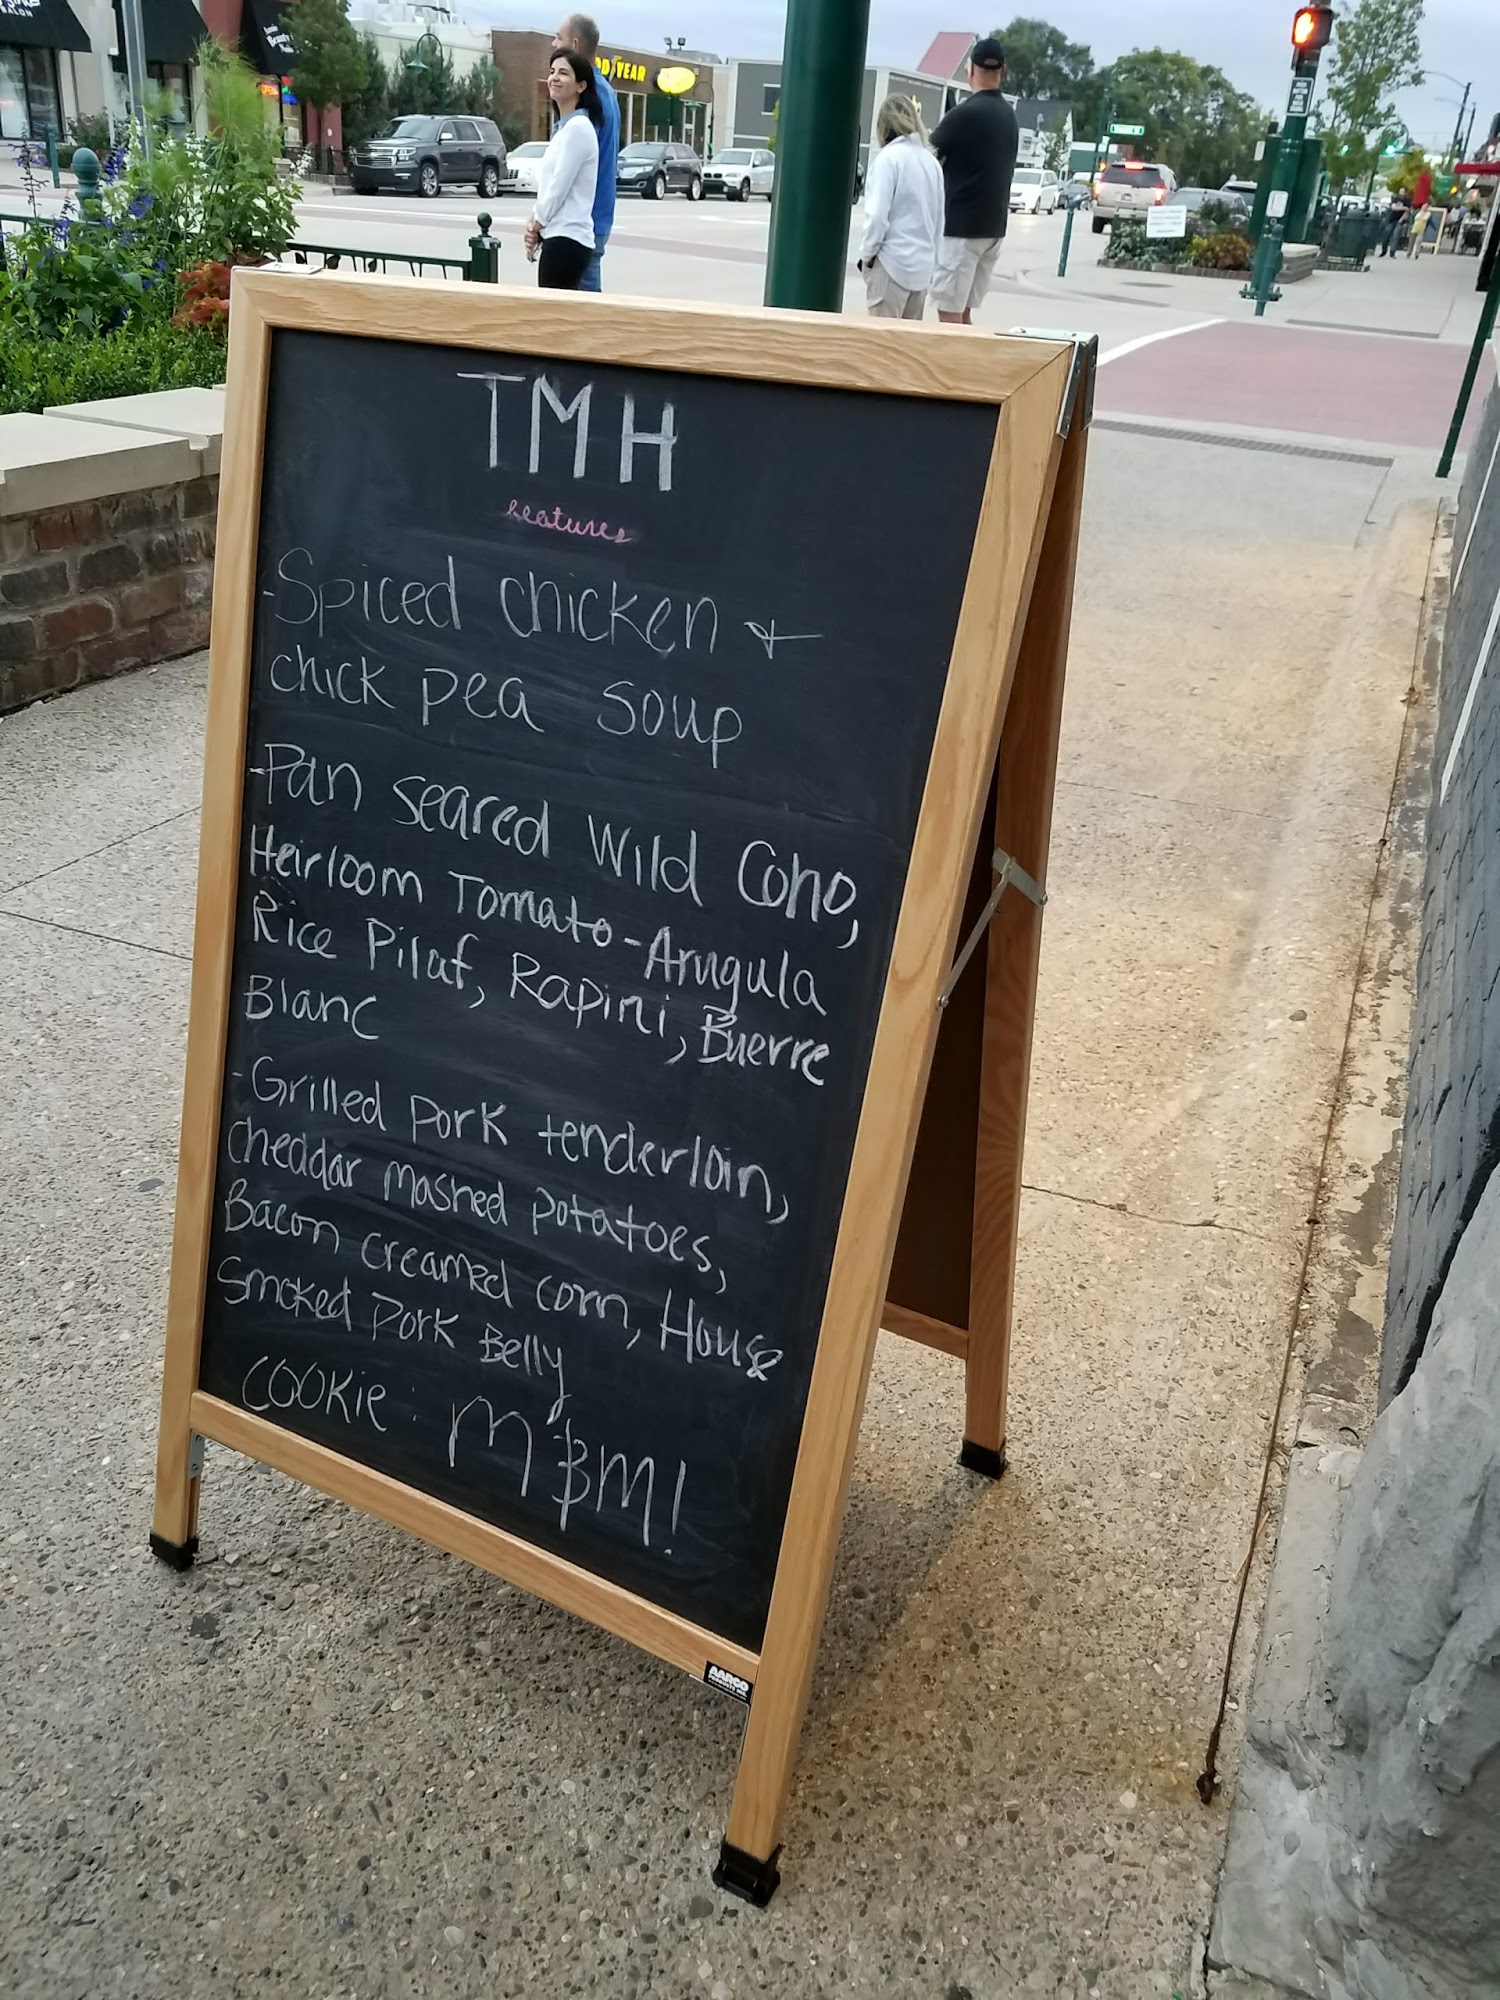 TMH
features
-Spiced chicken &
chick pea soup
-Pan seared Wild Coho,
Heirloom Tomato-Arugula
Rice Pilaf, Rapini, Buerre
Blanc
-Grilled pork tenderloin,
cheddar mashed potatoes,
Bacon creamed corn, House
smoked Pork Belly
COOKIE: M&M!
AARCO
PRODUCTS, INC.
SALON